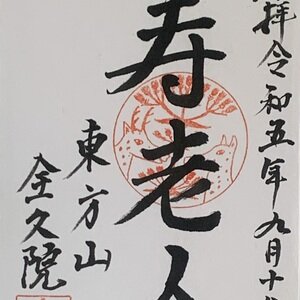 拝令和五年九月十
寿老人
東方山
全久院